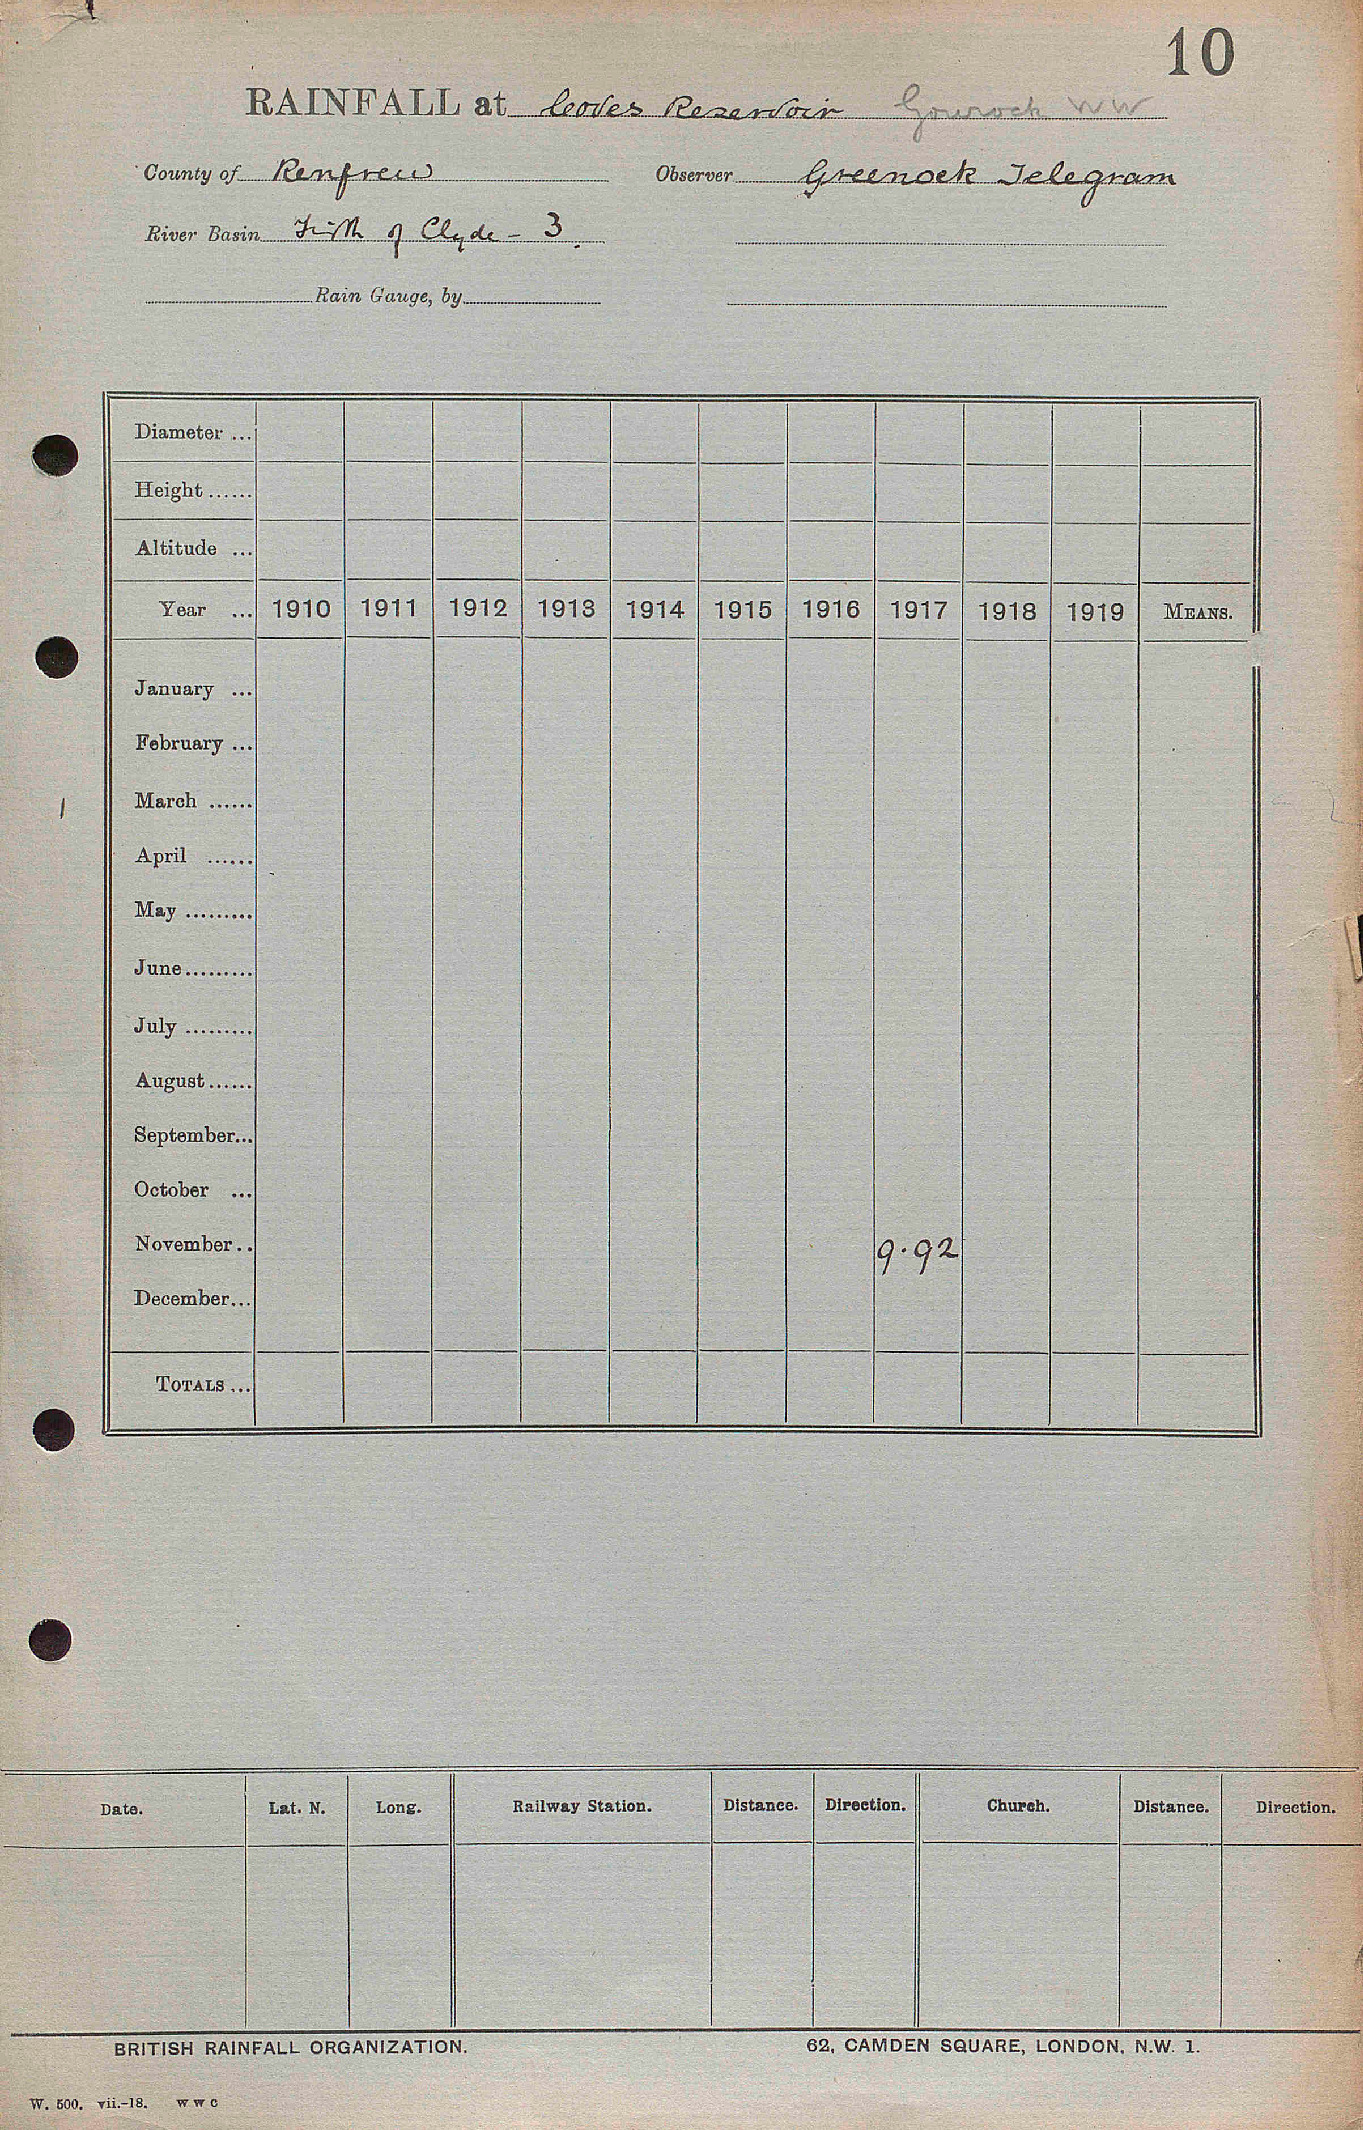 10
RAINFALL at Coves Reservoir Gourock W W
County of Renfrew Observer Greenock Telegram
River Basin Firth of Clyde - 3.
Rain Gauge, by
Diameter ...
Height ......
Altitude ...
Year ... 1910 1911 1912 1913 1914 1915 1916 1917 1918 1919 MEANS.
January ...
February ...
March ......
April ......
May .........
June.........
July .........
August......
September...
October ...
November.. 9.92
December...
TOTALS ...
Date. Lat. N. Long. Railway Station. Distance. Direction. Church. Distance. Direction.
BRITISH RAINFALL ORGANIZATION. 62, CAMDEN SQUARE, LONDON, N.W. 1.
W. 500. vii.-18. W W C